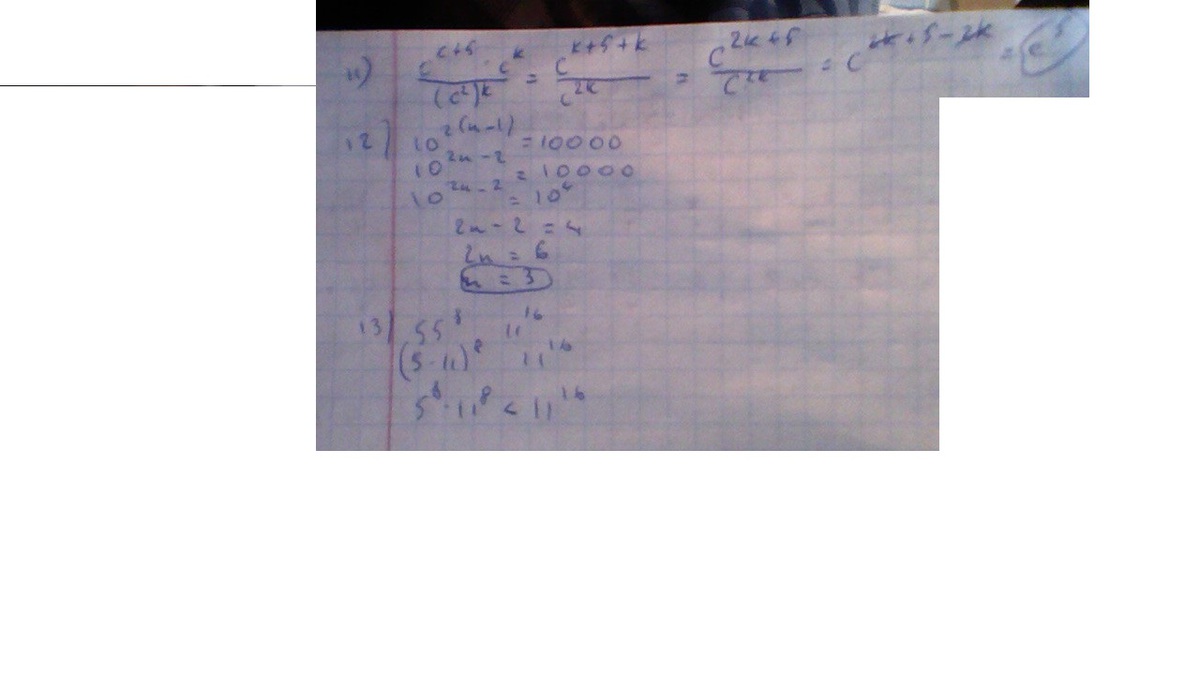 11) c^(k+5) · c^k / (c²)^k = c^(k+5+k) / c^(2k) = c^(2k+5) / c^(2k) = c^(2k+5-2k) = c⁵
12) 10^(2(n-1)) = 10000
10^(2n-2) = 10000
10^(2n-2) = 10⁴
2n - 2 = 4
2n = 6
n = 3
13) 55⁸ 11¹⁶
(5·11)⁸ 11¹⁶
5⁸·11⁸ < 11¹⁶